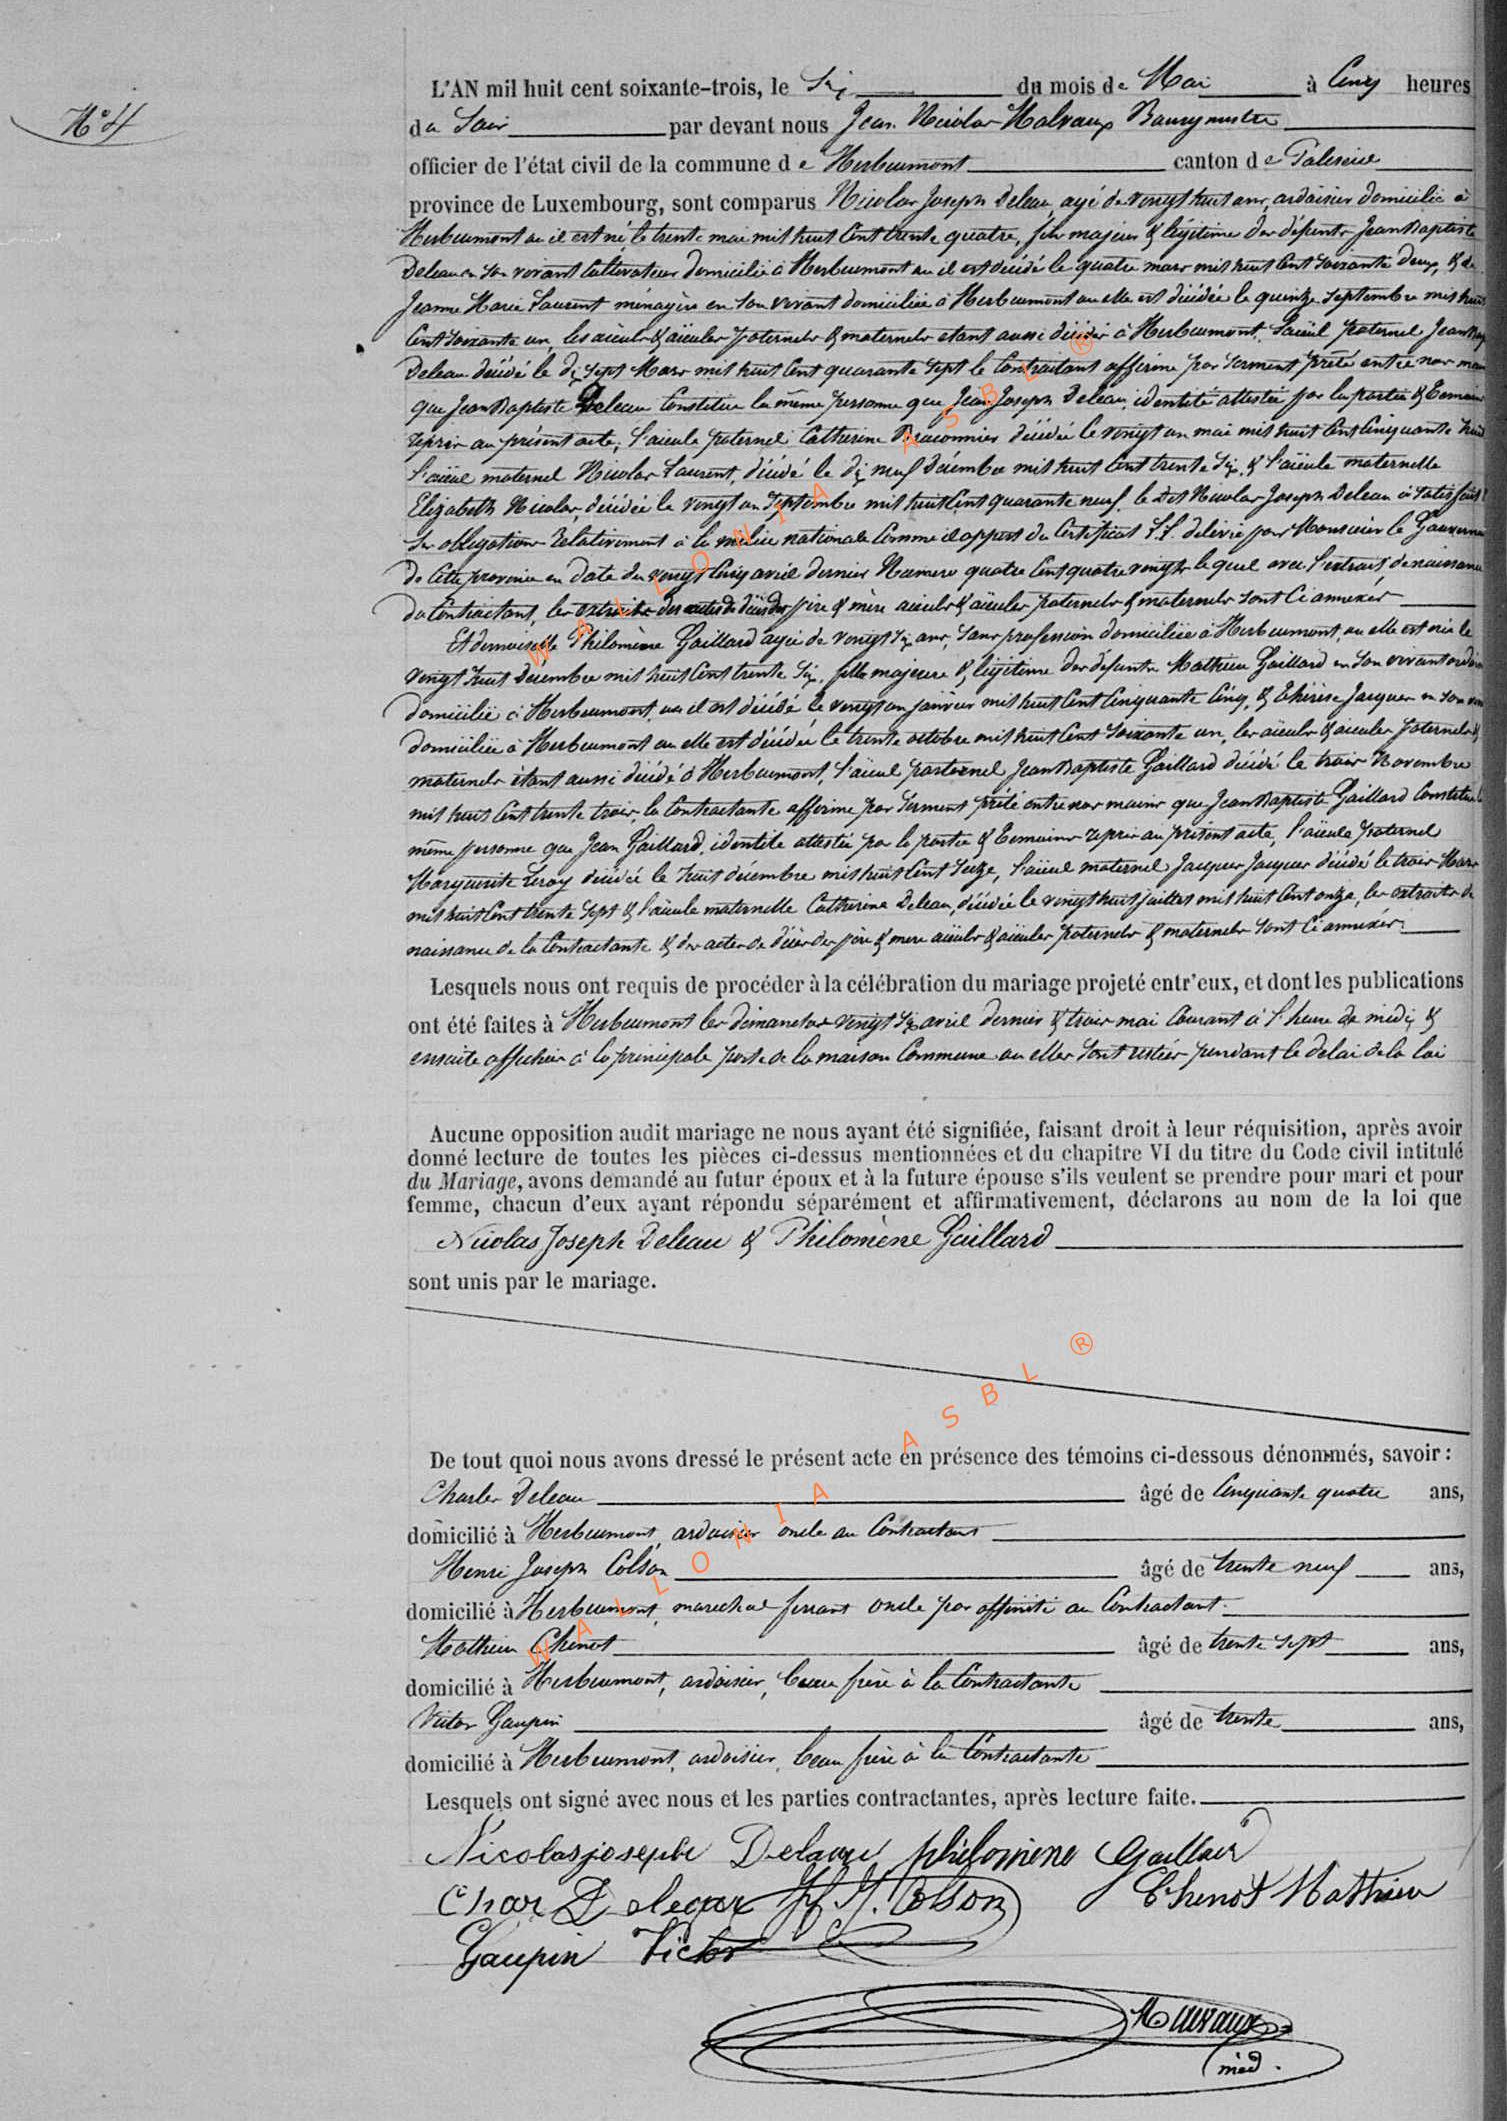 N° 4
L'AN mil huit cent soixante-trois, le Six du mois de Mai à Cinq heures
du Soir par devant nous Jean Nicolas Malvaux Bourgmestre
officier de l'état civil de la commune de Herbeumont canton de Paliseul
province de Luxembourg, sont comparus Nicolas Joseph Deleau, agé de vingt huit ans, ardoisier domicilié à
Herbeumont ou il est né le trente mai mil huit Cent trente quatre, fils majeur & légitime des défunts Jean Baptiste
Deleau en son vivant Cultivateur domicilié à Herbeumont ou il est décédé le quatre mars mil huit Cent soixante deux, & de
Jeanne Marie Laurent ménagère en son vivant domiciliée à Herbeumont ou elle est décédée le quinze septembre mil huit
Cent soixante un, les aïeuls & aïeules paternels & maternels etant aussi décédés à Herbeumont, l'aïeul paternel Jean Bap
Deleau décédé le dix sept Mars mil huit Cent quarante sept le Contractant affirme par serment prêté entre nos mains
que Jean Baptiste Deleau Constitue la même personne que Jean Joseph Deleau, identité attestée par la partie & temoins
repris au présent acte; l'aieule paternel Catherine Braconnier décédée le vingt un mai mil huit Cent Cinquante huit
l'aïeul maternel Nicolas Laurent, décédé le dix neuf Décembre mil huit Cent trente six, & l'aïeule maternelle
Elizabeth Nicolas, décédée le vingt un Septembre mil huit Cent quarante neuf, le dit Nicolas Joseph Deleau à satisfait
Ses obligations Relativement à la milice nationale Comme il appert du Certificat delivré par Monsieur le Gouverneur
de Cette province en date du vingt Cinq avril dernier Numero quatre Cent quatre vingts lequel avec l'extrait de naissance
du Contractant, les extraits des actes de décès des père & mère aieuls & aïeules paternels & maternels sont Ci annexés
Et demoiselle Philomène Gaillard agée de vingt six ans, sans profession domiciliée à Herbeumont, ou elle est née le
vingt huit Decembre mil huit Cent trente six, fille majeure & légitime des défunts Mathieu Gaillard en son vivant ardoisier
domicilié à Herbeumont, ou il est décédé le vingt un janvier mil huit Cent Cinquante Cinq, & Thérèse Jacques en son
domiciliée à Herbeumont ou elle est décédée le trente octobre mil huit Cent soixante un, les aïeuls & aieules paternels &
maternels étant aussi décédé à Herbeumont, l'aïeul paternel Jean Baptiste Gaillard décédé le trois Novembre
mil huit Cent trente trois, la Contractante affirme par serment prêté entre nos mains que Jean Baptiste Gaillard Constitue la
même personne que Jean Gaillard, identité attestée par la partie & temoins repris au présent acte, l'aïeule paternel
Marguerite Leroy décédée le huit décembre mil huit Cent seize, l'aïeul maternel Jacques Jacques décédé le trois Mars
mil huit Cent trente sept & l'aïeule maternelle Catherine Deleau, décédée le vingt huit juillet mil huit Cent onze, les extraits de
naissance de la Contractante & des actes de décès des père & mere aïeuls & aïeules paternels & maternels sont Ci annexés
Lesquels nous ont requis de procéder à la célébration du mariage projeté entr'eux, et dont les publications
ont été faites à Herbeumont les dimanches vingt six avril dernier & trois mai Courant à l'heure de midi &
ensuite affichées à la principale porte de la maison Commune ou elles sont restées pendant le délai de la loi
Aucune opposition audit mariage ne nous ayant été signifiée, faisant droit à leur réquisition, après avoir
donné lecture de toutes les pièces ci-dessus mentionnées et du chapitre VI du titre du Code civil intitulé
du Mariage, avons demandé au futur époux et à la future épouse s'ils veulent se prendre pour mari et pour
femme, chacun d'eux ayant répondu séparément et affirmativement, déclarons au nom de la loi que
Nicolas Joseph Deleau & Philomène Gaillard
sont unis par le mariage.
De tout quoi nous avons dressé le présent acte en présence des témoins ci-dessous dénommés, savoir :
Charles Deleau âgé de Cinquante quatre ans,
domicilié à Herbeumont, ardoisier oncle au Contractant
Henri Joseph Colson âgé de trente neuf ans,
domicilié à Herbeumont, marechal ferrant oncle par affinité au Contractant
Mathieu Chenot âgé de trente sept ans,
domicilié à Herbeumont, ardoisier, beau frère à la Contractante
Victor Gaupin âgé de trente ans,
domicilié à Herbeumont, ardoisier, beau frère à la Contractante
Lesquels ont signé avec nous et les parties contractantes, après lecture faite.
Nicolas joseph Deleau philomene Gaillard
Char Deleau H. J. Colson Chenot Mathieu
Gaupin Victor
Malvaux
WALLONIA ASBL ®
WALLONIA ASBL ®